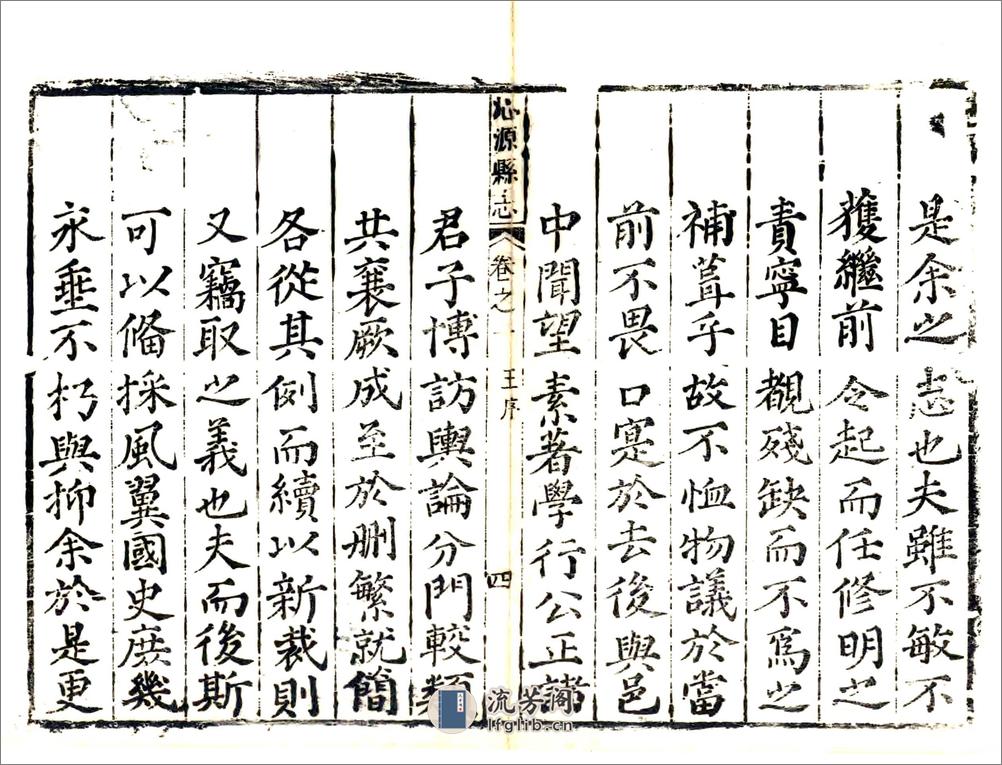 是余之志也夫雖不敏不
獲繼前令起而任修明之
責寧目覩殘缺而不爲之
補葺乎故不恤物議於當
前不畏口寔於去後與邑
中聞望素著學行公正諸
沁源縣志
卷之一
王序
四
君子博訪輿論分門較類
共襄厥成至於刪繁就簡
各從其例而續以新裁則
又竊取之義也夫而後斯
可以偹採風翼國史庶幾
永垂不朽與抑余於是更
流芳阁
lfglib.cn